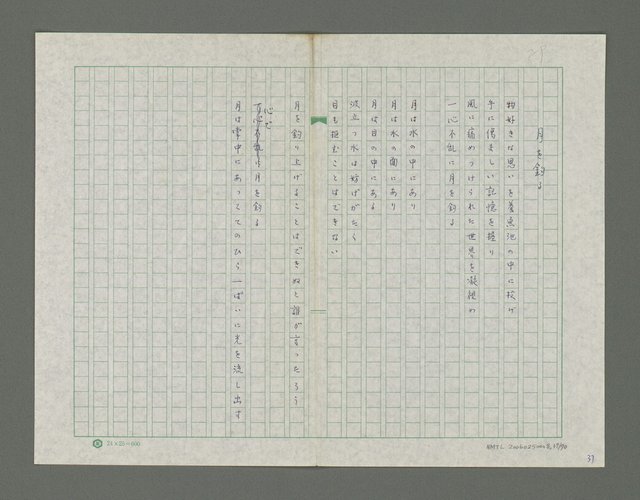 月を釣る
物好きな思いを養魚池の中に投げ
手に傷ましい記憶を握り
風に痛めつけられた世界を凝視め
一心不乱に月を釣る
月は水の中にあり
月は水の面にあり
月は目の中にある
波立つ水は妨げがたく
目も拒むことはできない
月を釣り上げることはできぬと誰が言ったろう
心で
月を釣る
月は掌中にあっててのひら一ぱいに光を流し出す
24×25=600
NMTL
37